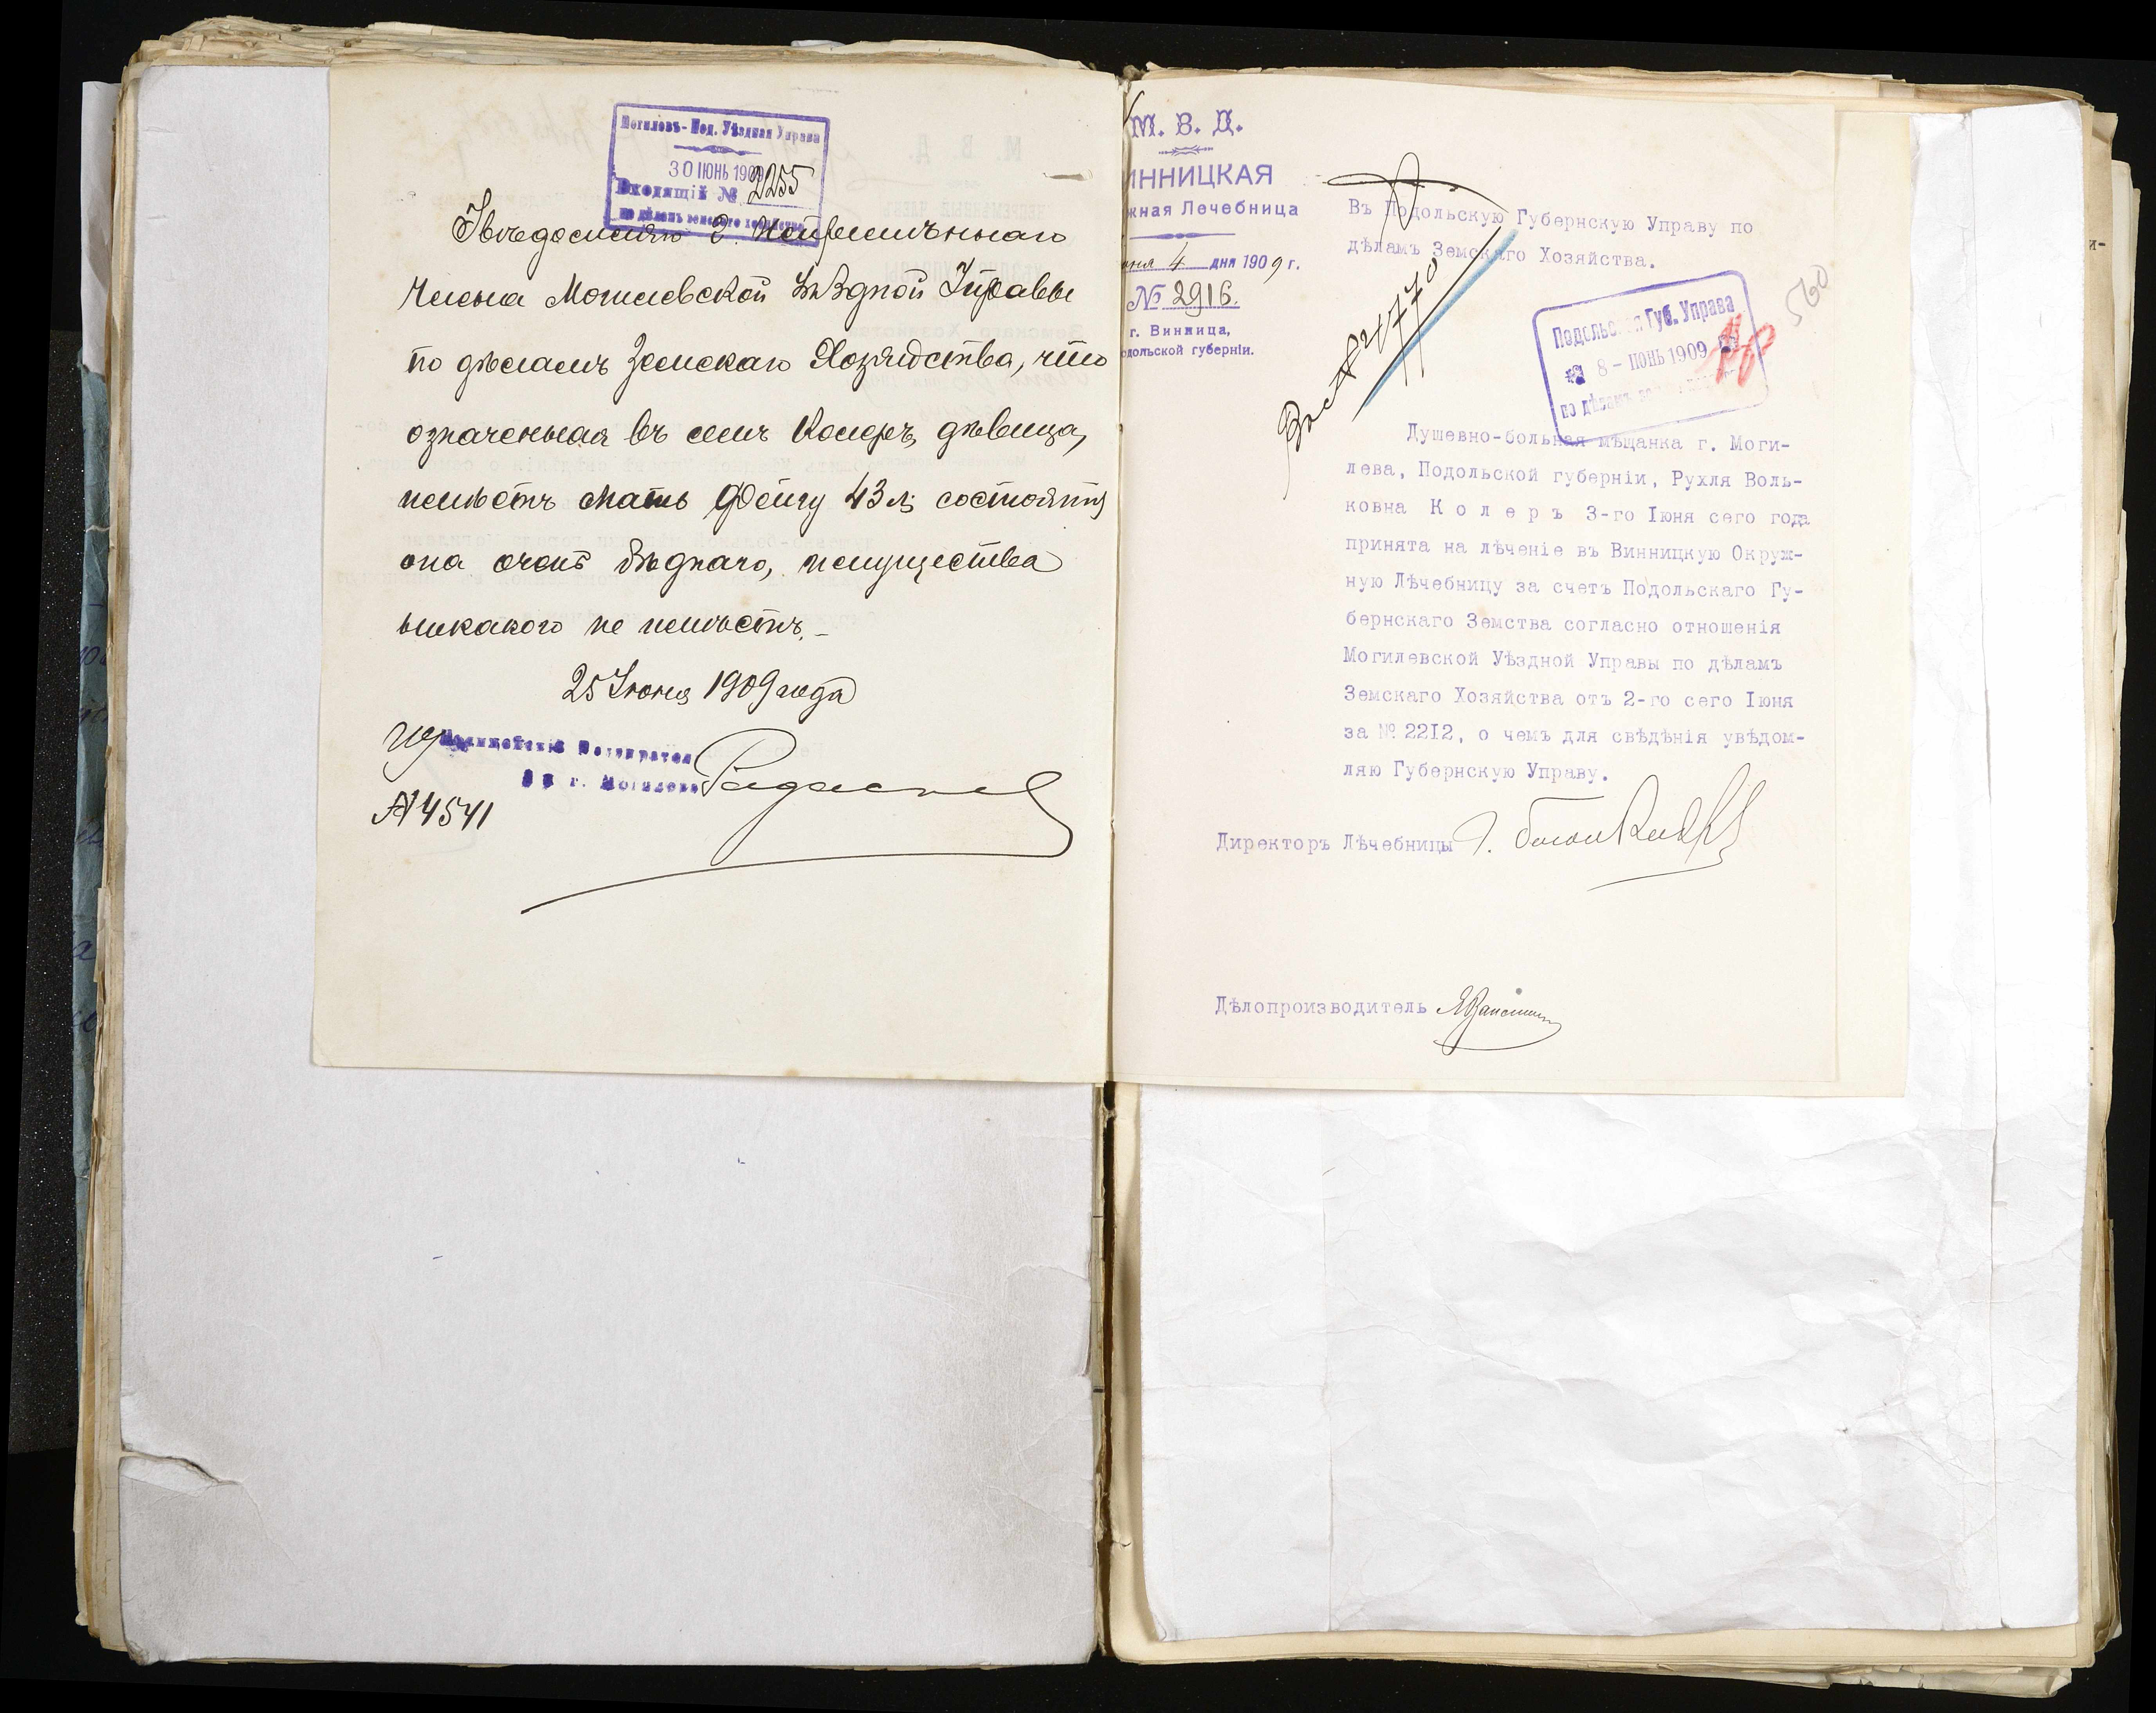 Могилевъ-Под. Уѣздная Управа
30 ІЮНЬ 1909
Входящій № 2255
по дѣламъ земскаго хозяйства
Увѣдомляю Г. Непремѣннаго
Члена Могилевской Уѣздной Управы
по дѣламъ Земскаго Хозяйства, что
означенная въ семъ Колеръ, дѣвица,
имѣетъ мать Фейгу 43 л; состоянія
она очень бѣднаго, имущества
никакого не имѣетъ.
25 Іюня 1909 года
Полицейскій Надзиратель
г. Могилева
№ 4541
М. В. Д.
ИННИЦКАЯ
жная Лечебница
юня 4 дня 1909 г.
№ 2916.
г. Винница,
одольской губерніи.
Въ Подольскую Губернскую Управу по
дѣламъ Земскаго Хозяйства.
560
Подольская Губ. Управа
8 - ІЮНЬ 1909
по дѣламъ
Душевно-больная мѣщанка г. Моги-
лева, Подольской губерніи, Рухля Воль-
ковна Колеръ 3-го Іюня сего года
принята на лѣченіе въ Винницкую Окруж-
ную Лѣчебницу за счетъ Подольскаго Гу-
бернскаго Земства согласно отношенія
Могилевской Уѣздной Управы по дѣламъ
Земскаго Хозяйства отъ 2-го сего Іюня
за № 2212, о чемъ для свѣдѣнія увѣдом-
ляю Губернскую Управу.
Директоръ Лѣчебницы
Дѣлопроизводитель